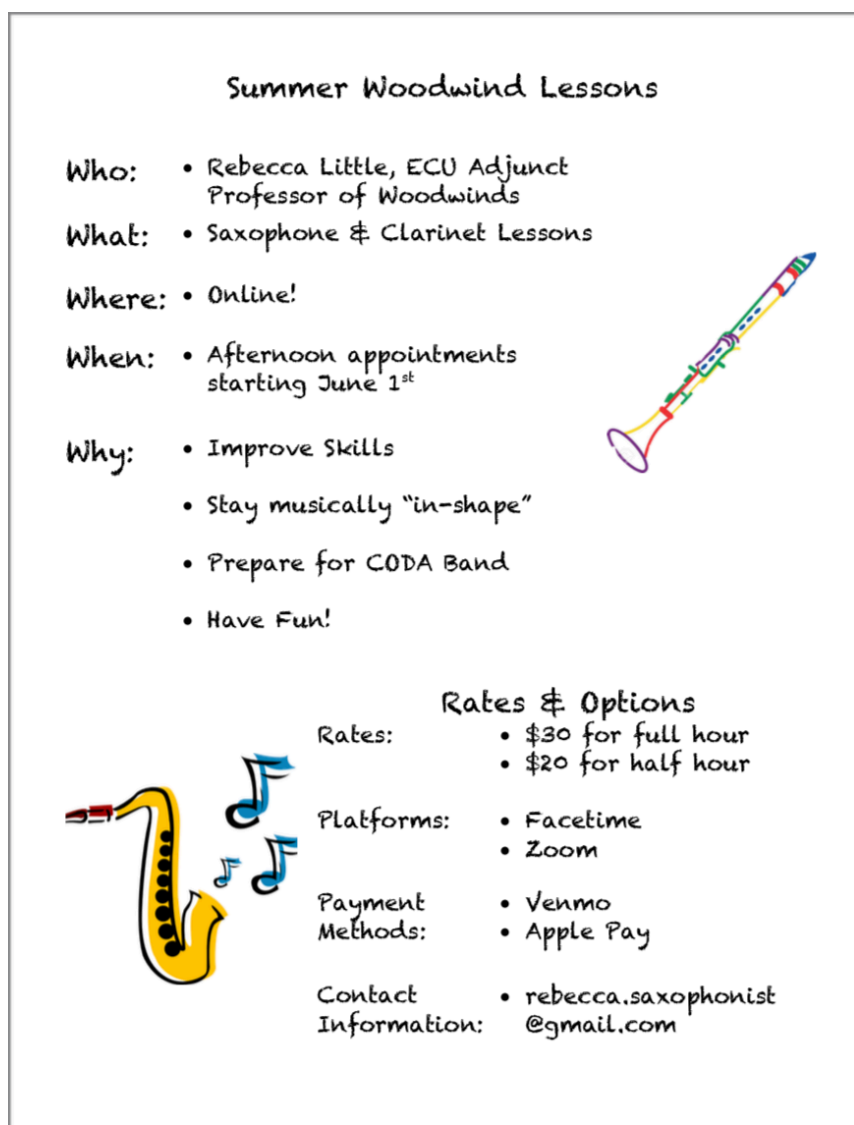 Summer Woodwind Lessons
Who: • Rebecca Little, ECU Adjunct
Professor of Woodwinds
What: • Saxophone & Clarinet Lessons
Where: • Online!
When: • Afternoon appointments
starting June 1st
Why: • Improve Skills
• Stay musically “in-shape”
• Prepare for CODA Band
• Have Fun!
Rates & Options
Rates: • $30 for full hour
• $20 for half hour
Platforms: • Facetime
• Zoom
Payment • Venmo
Methods: • Apple Pay
Contact • rebecca.saxophonist
Information: @gmail.com